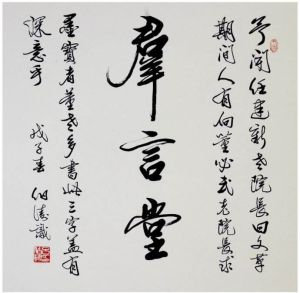 予闻任建新老院長曰文革
期间人有向董必武老院長求
羣言堂
墨寶者董老多書此三字盖有
深意乎
戊子春 識